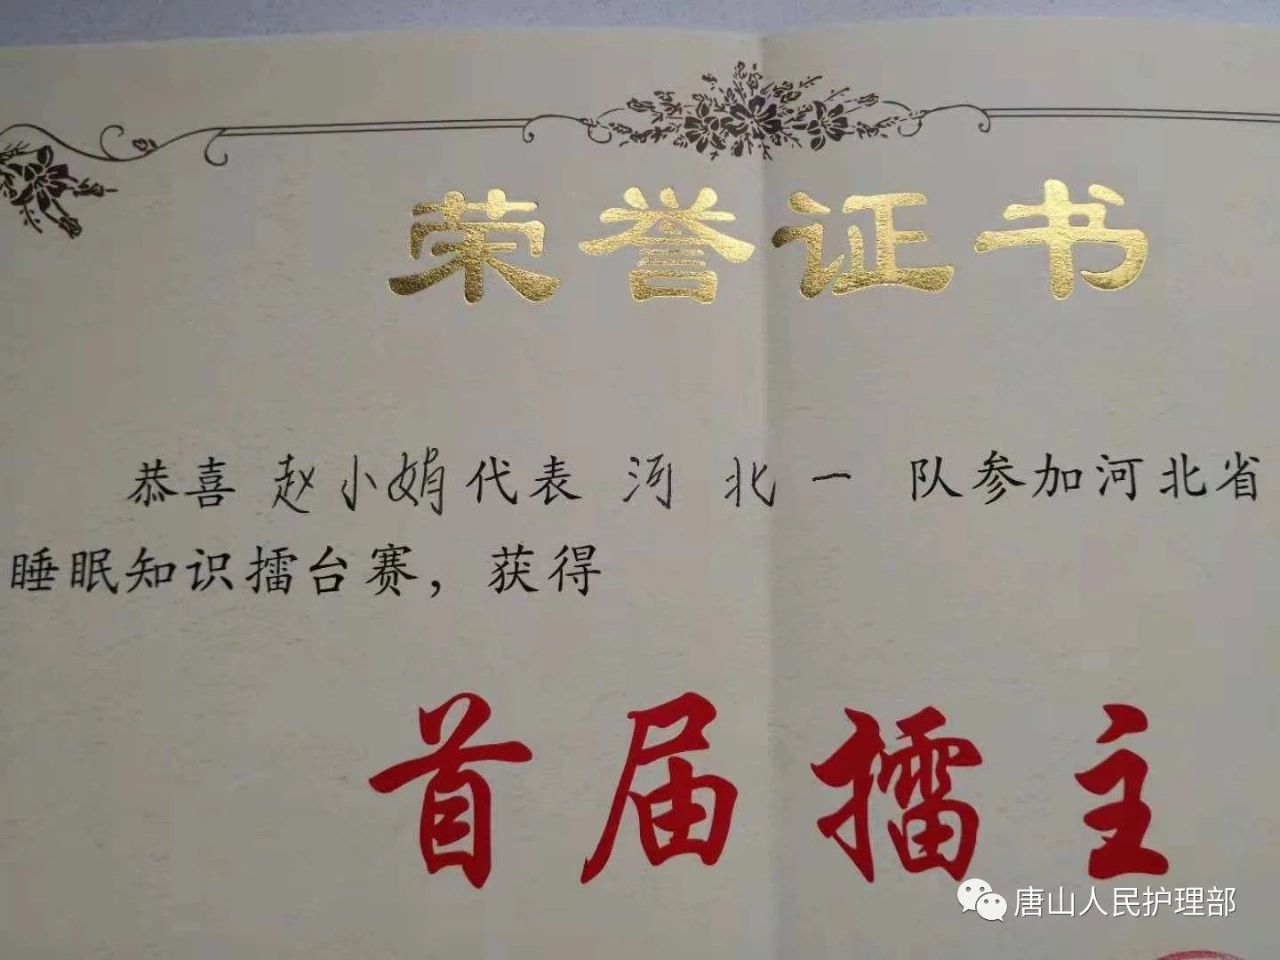 荣誉证书
恭喜 赵小娟代表 河 北 一 队参加河北省
睡眠知识擂台赛，获得
首届擂主
唐山人民护理部